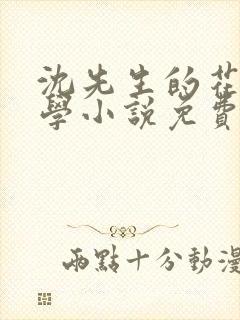 沈先生的花
學小說免費
兩點十分動漫